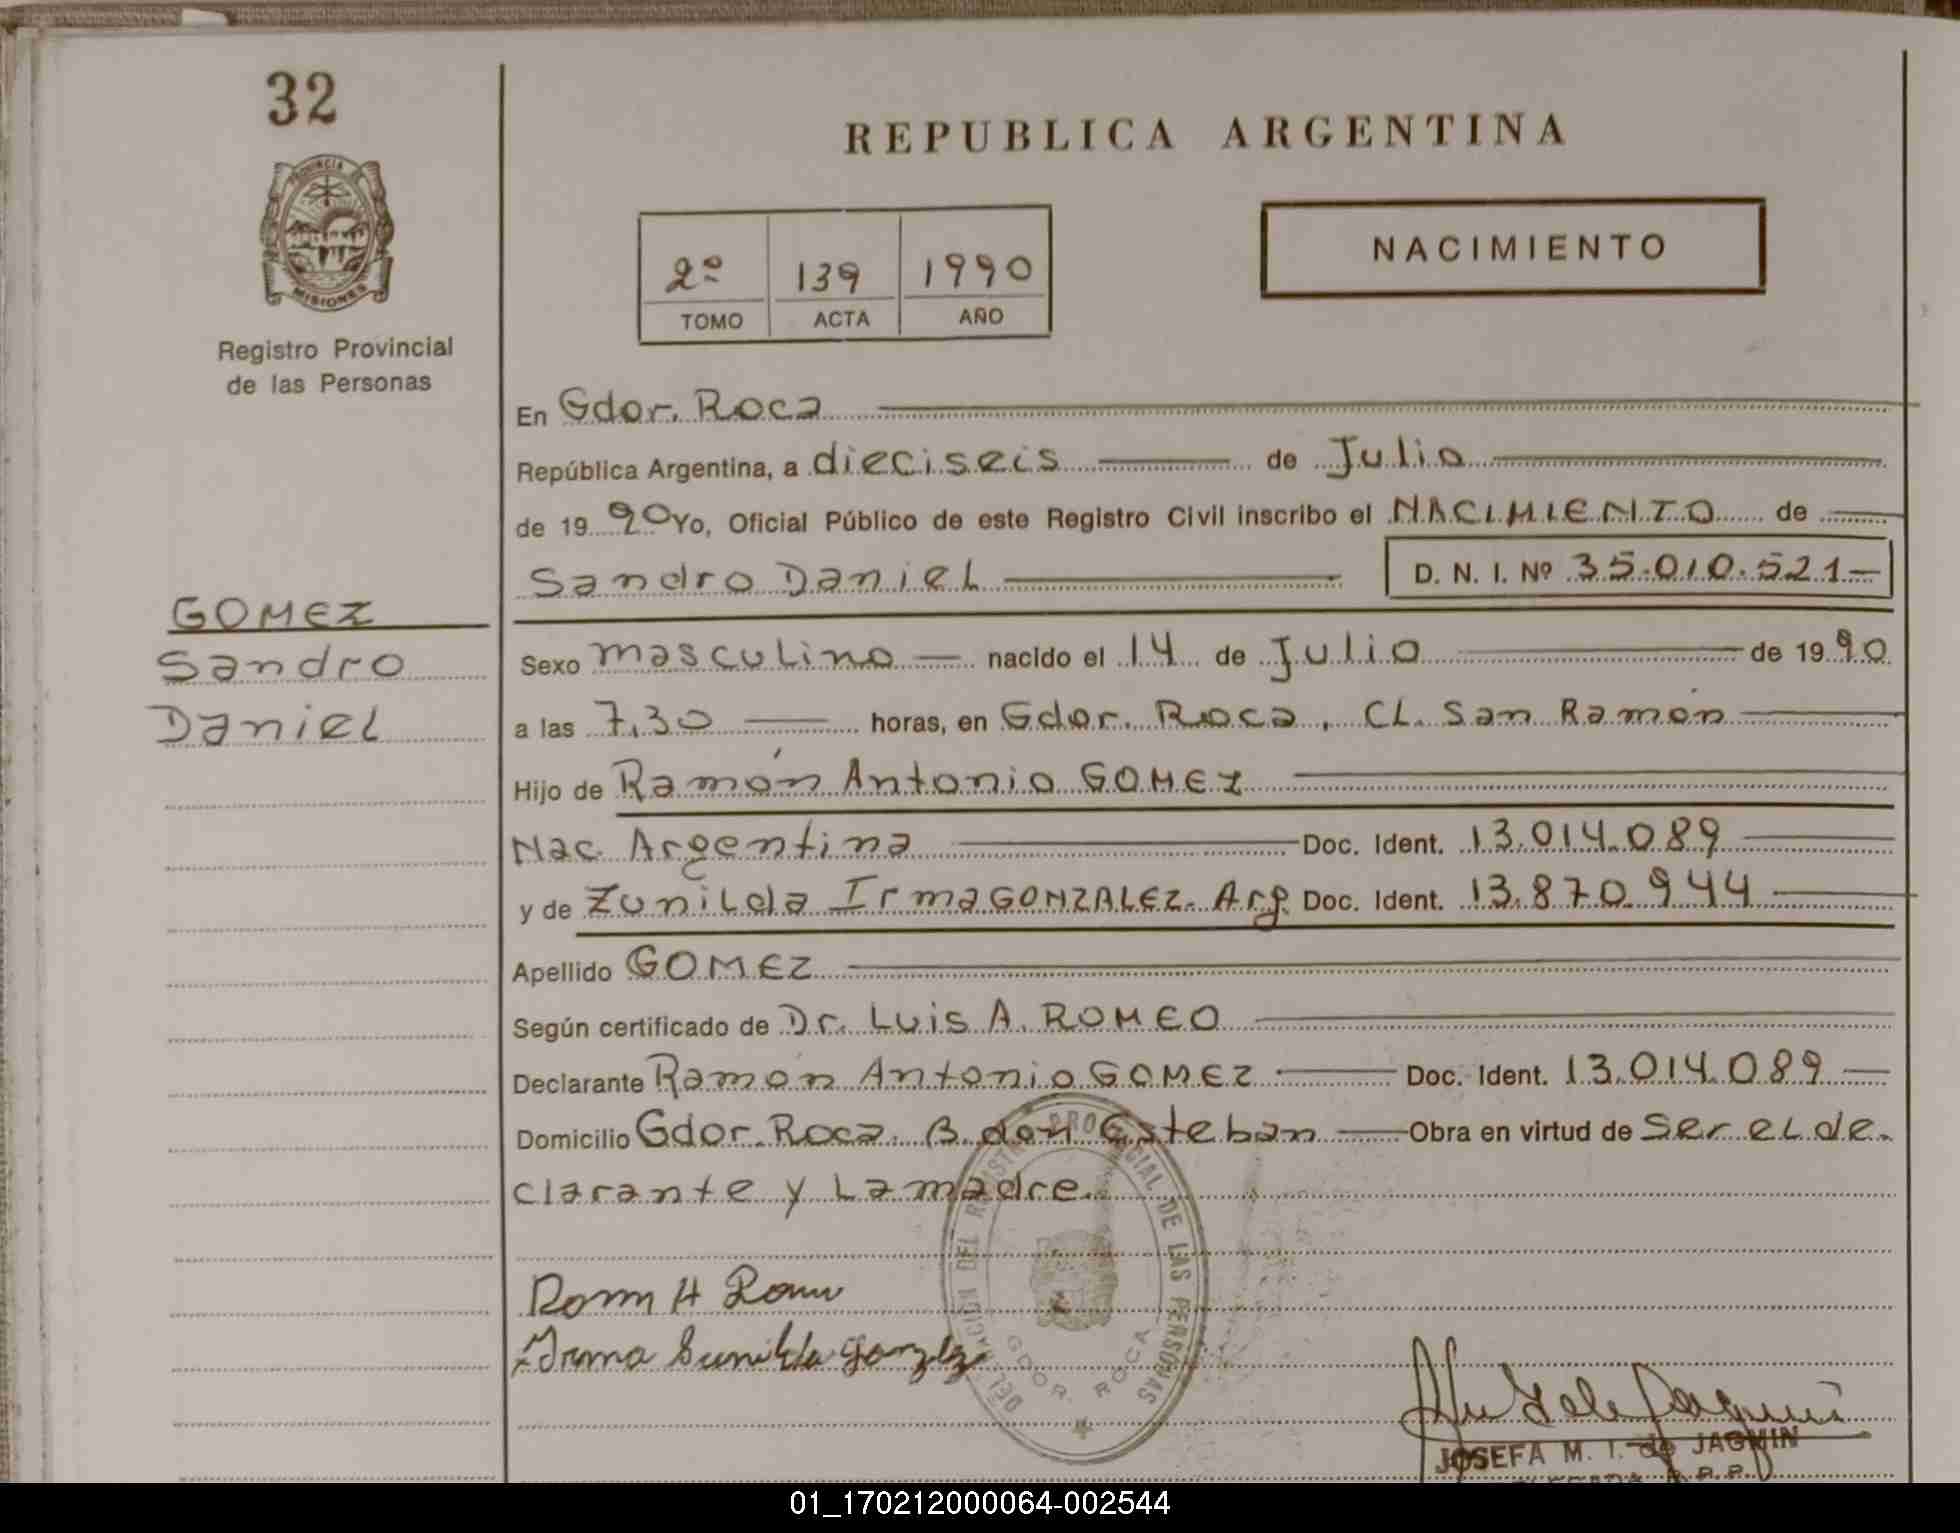 32
REPUBLICA ARGENTINA
PROVINCIA DE
MISIONES
Registro Provincial
de las Personas
2º 139 1990
TOMO ACTA AÑO
NACIMIENTO
En Gdor. Roca
República Argentina, a dieciseis de Julio
de 1990 Yo, Oficial Público de este Registro Civil inscribo el NACIMIENTO de
Sandro Daniel D. N. I. Nº 35.010.521-
GOMEZ
Sandro
Daniel
Sexo masculino nacido el 14 de Julio de 1990
a las 7,30 horas, en Gdor. Roca, CL. San Ramón
Hijo de Ramón Antonio GOMEZ
Nac. Argentina Doc. Ident. 13.014.089
y de Zunilda Irma GONZALEZ. Arg. Doc. Ident. 13.870.944
Apellido GOMEZ
Según certificado de Dr. Luis A. ROMEO
Declarante Ramón Antonio GOMEZ Doc. Ident. 13.014.089
Domicilio Gdor. Roca. B. don Esteban Obra en virtud de Ser el de-
clarante y La madre.
DEL REGISTRO PROVINCIAL DE LAS PERSONAS
GDOR. ROCA
Irma Sunilda
JOSEFA M. I. de JAGMIN
01_170212000064-002544